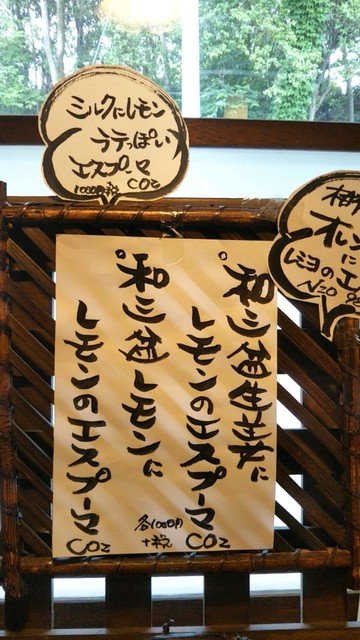 ミルクにレモン
ラテっぽい
エスプーマ
1000円+税 CO2
。和三盆生姜に
レモンのエスプーマ
CO2
。和三盆レモンに
レモンのエスプーマ
CO2
各1000円
+税
オレン
に
レミヨの
N2O